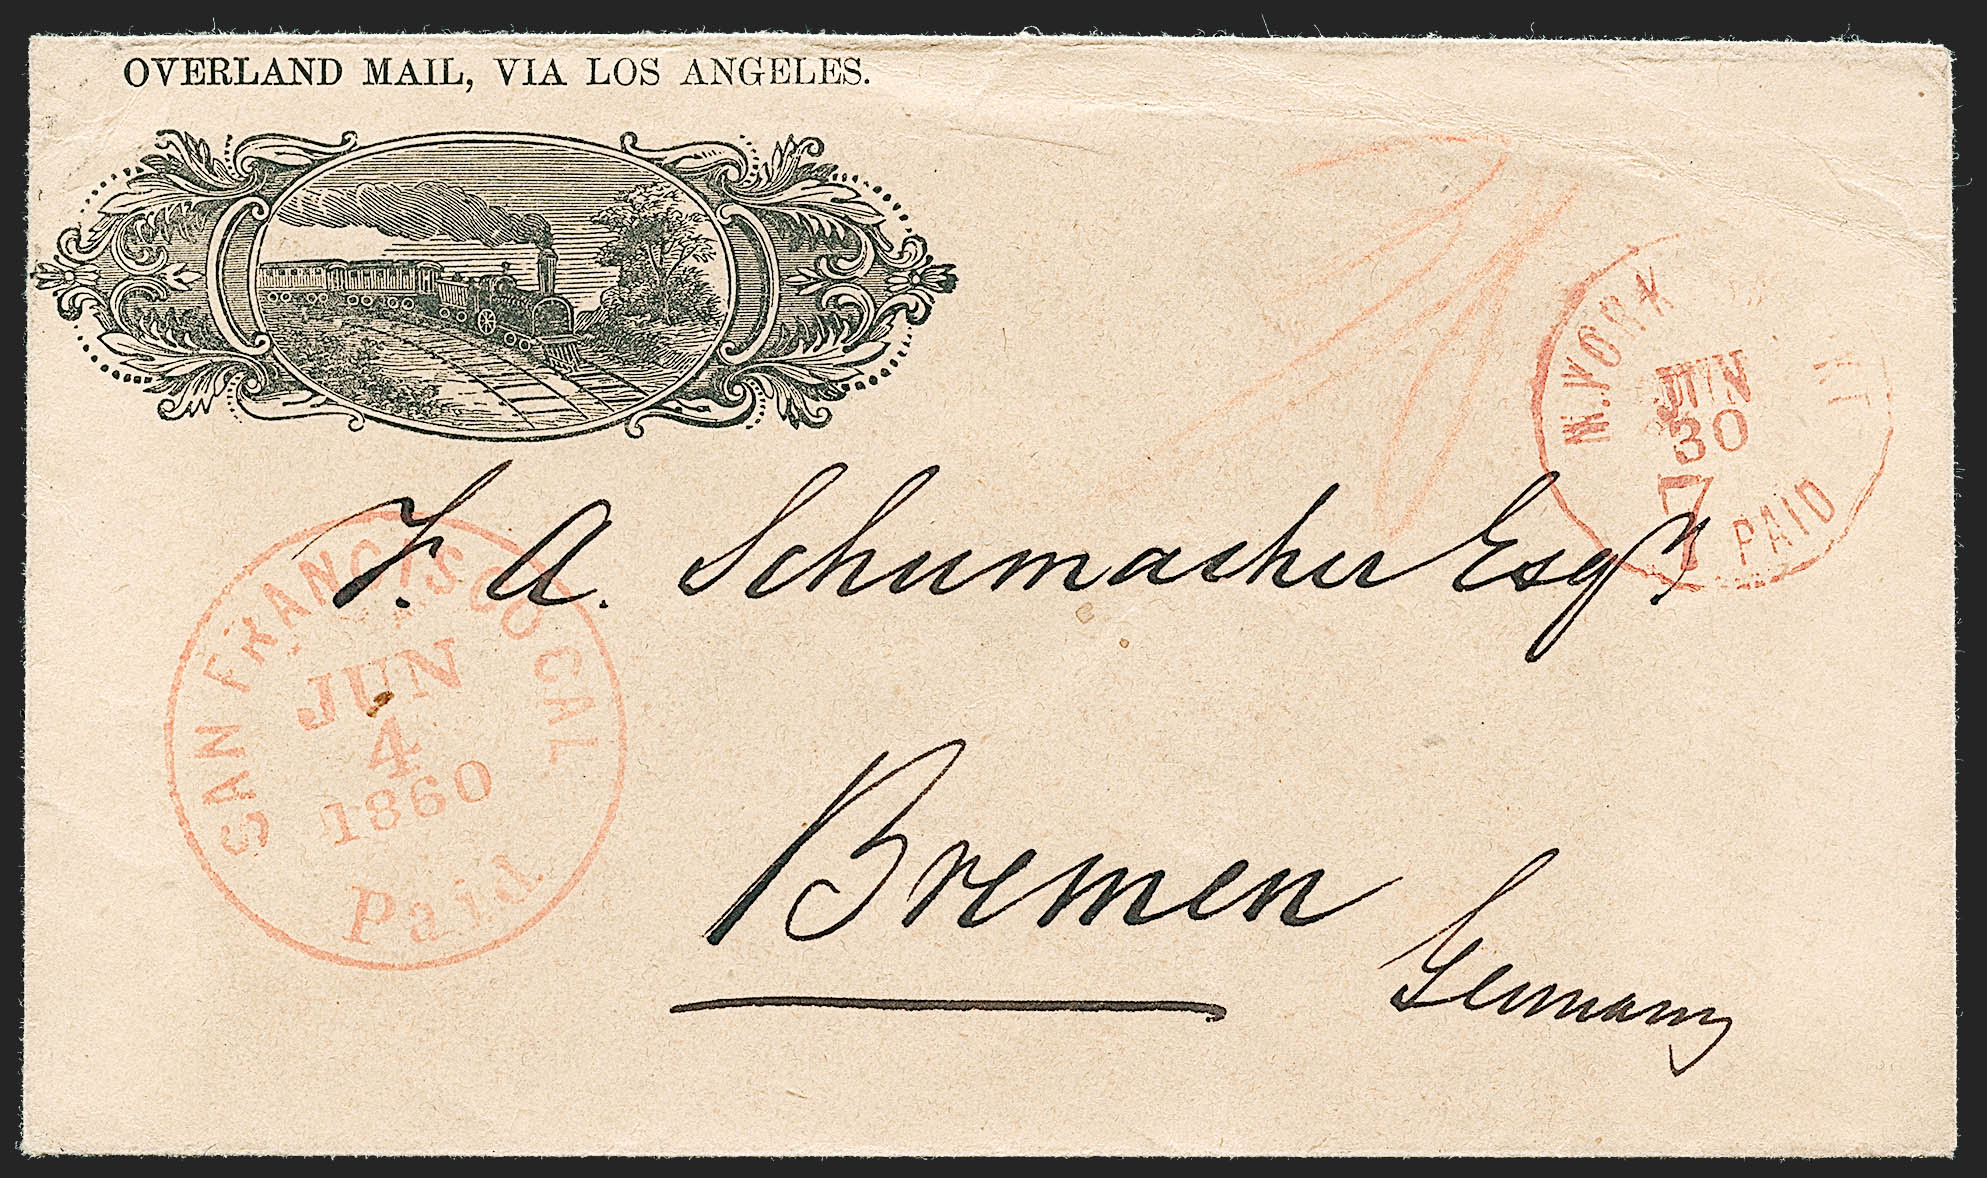 OVERLAND MAIL, VIA LOS ANGELES.
N. YORK
JUN
30
7
PAID
F. A. Schumacher Esqr
SAN FRANCISCO CAL
JUN
4
1860
Paid
Bremen
Germany